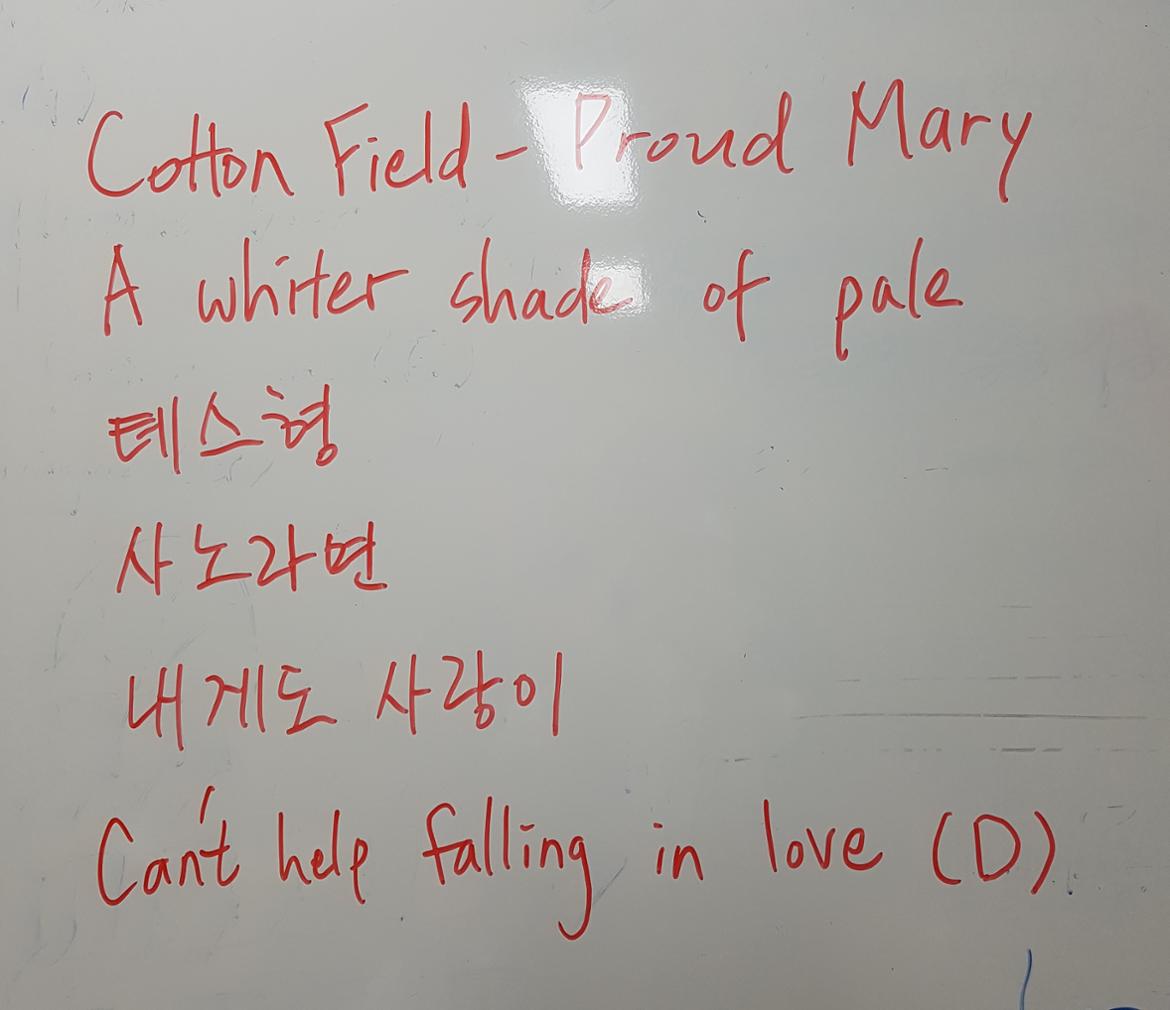 Cotton Field - Proud Mary
A whiter shade of pale
테스형
사노라면
내게도 사랑이
Can't help falling in love (D)